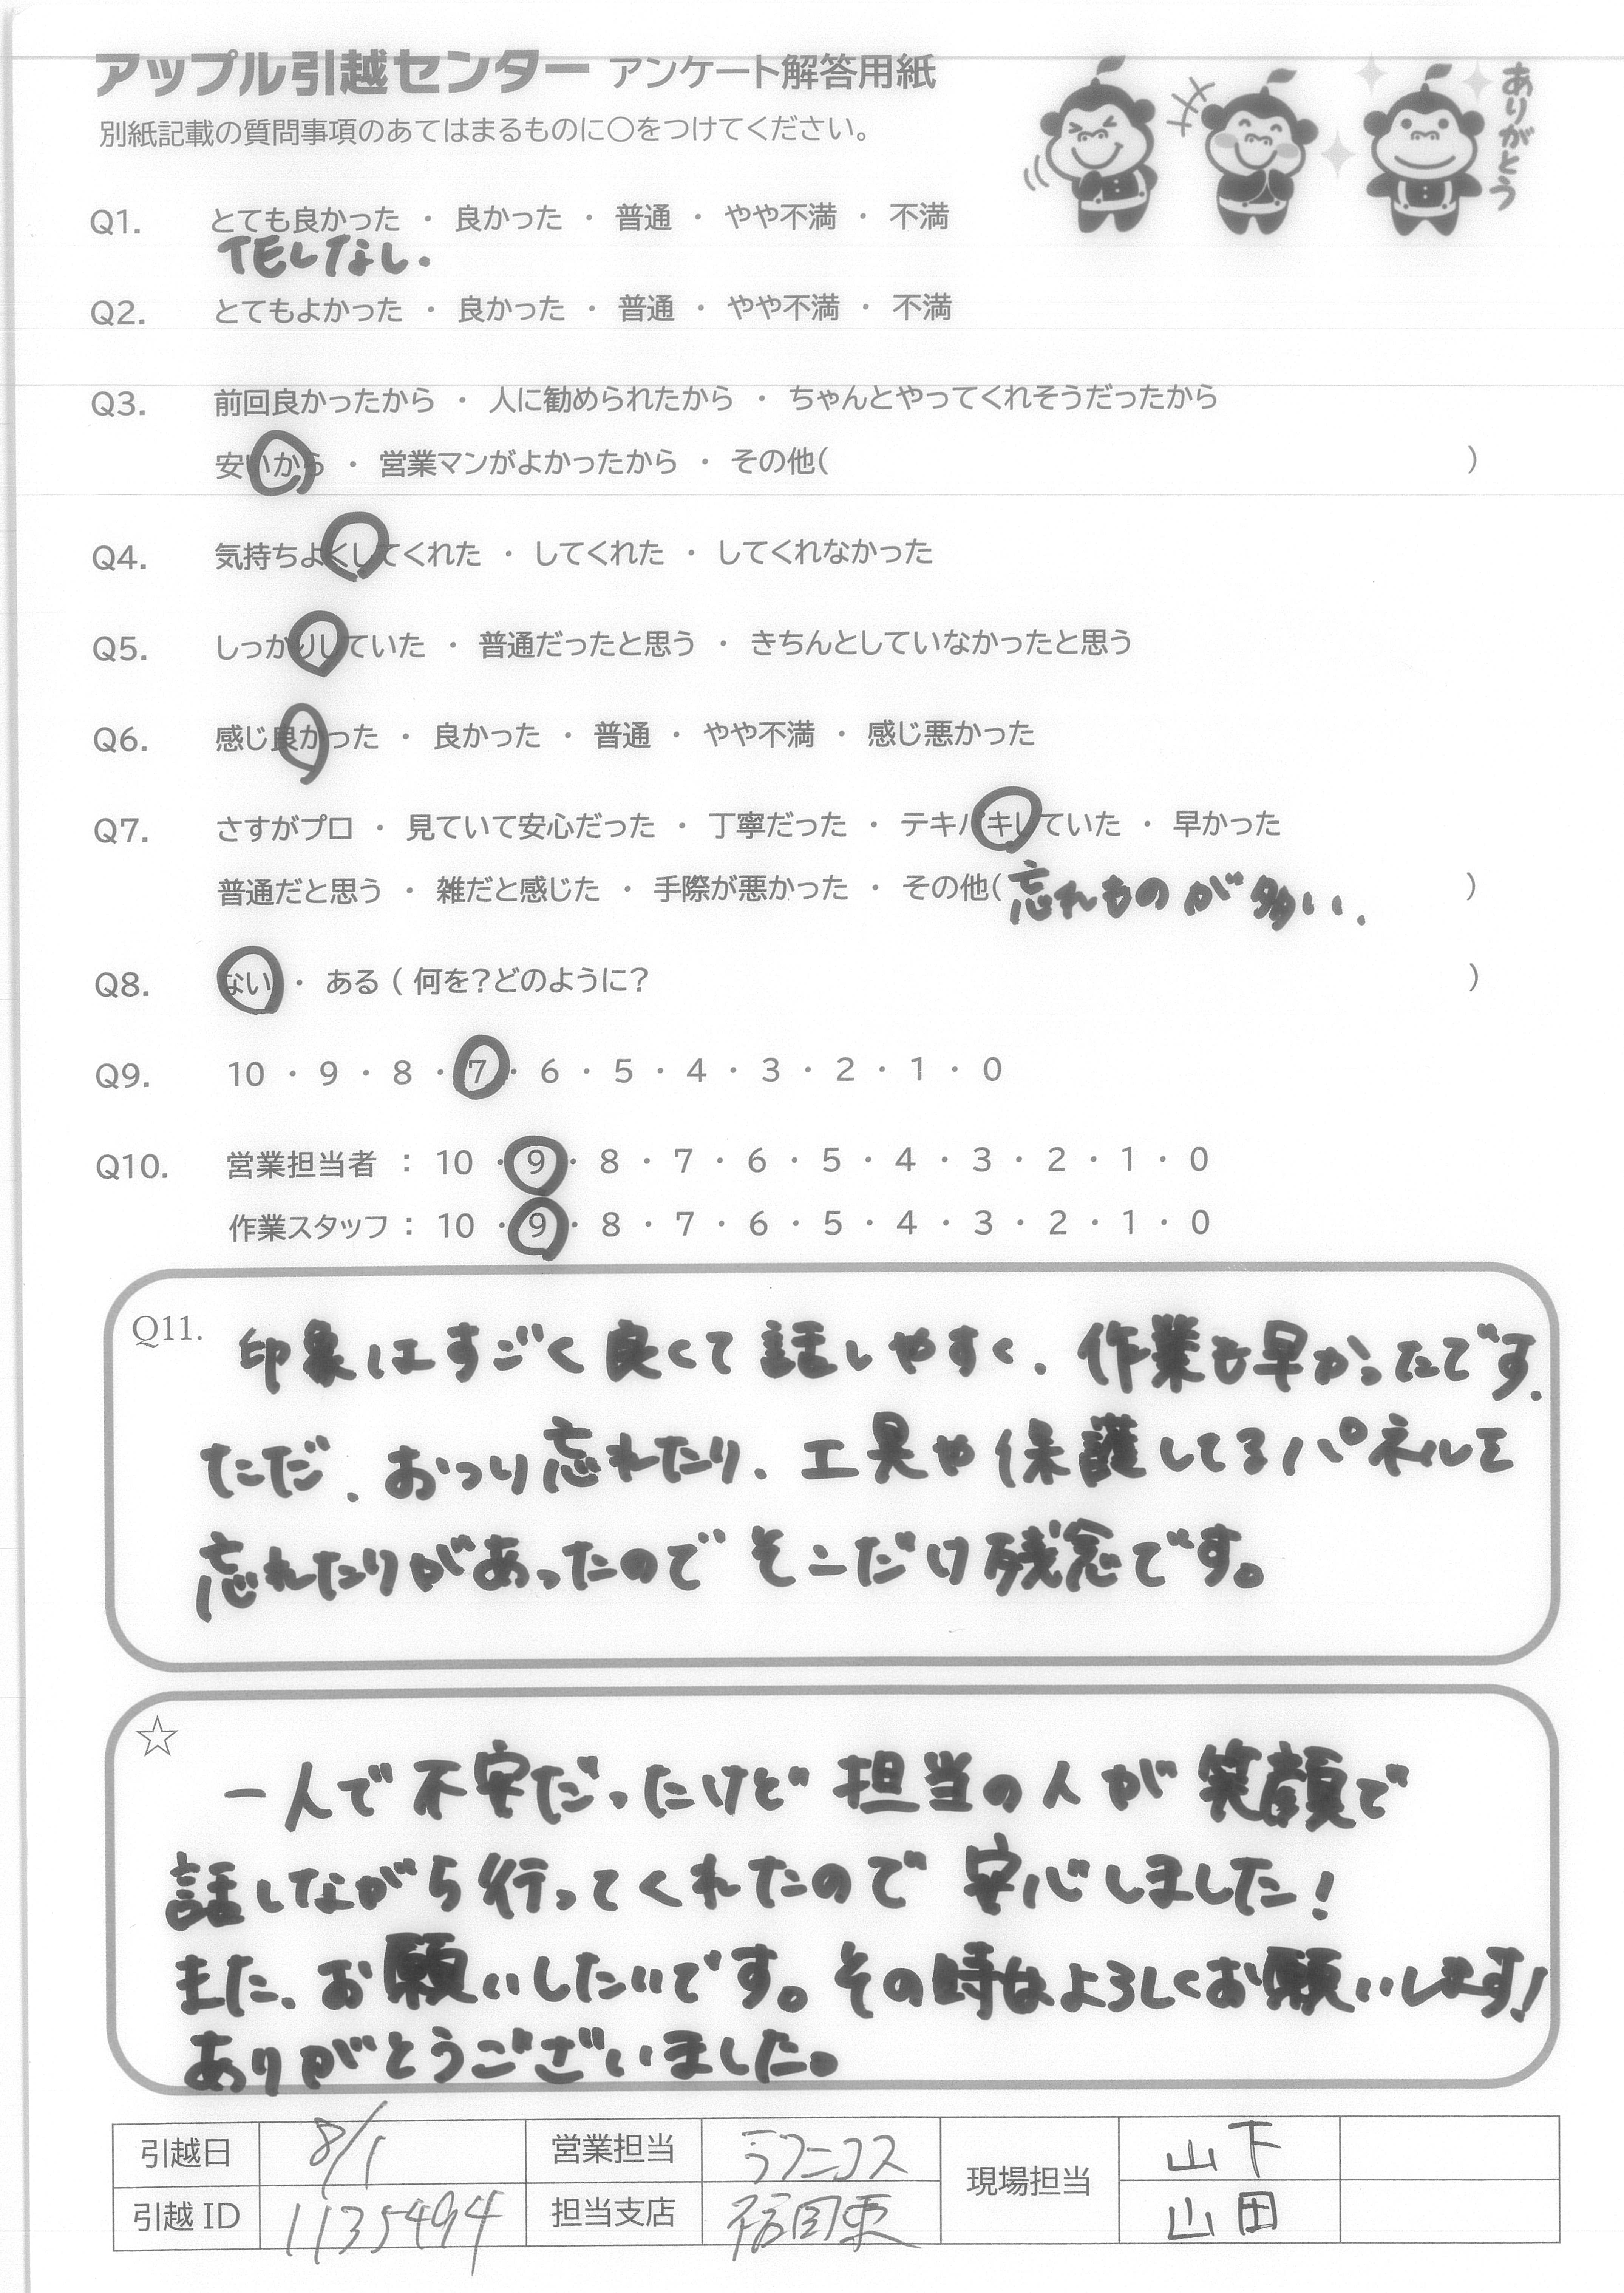 アップル引越センター アンケート解答用紙
ありがとう
別紙記載の質問事項のあてはまるものに○をつけてください。
Q1. とても良かった ・ 良かった ・ 普通 ・ やや不満 ・ 不満
TELなし.
Q2. とてもよかった ・ 良かった ・ 普通 ・ やや不満 ・ 不満
Q3. 前回良かったから ・ 人に勧められたから ・ ちゃんとやってくれそうだったから
安いから ・ 営業マンがよかったから ・ その他( )
Q4. 気持ちよくしてくれた ・ してくれた ・ してくれなかった
Q5. しっかりしていた ・ 普通だったと思う ・ きちんとしていなかったと思う
Q6. 感じ良かった ・ 良かった ・ 普通 ・ やや不満 ・ 感じ悪かった
Q7. さすがプロ ・ 見ていて安心だった ・ 丁寧だった ・ テキパキしていた ・ 早かった
普通だと思う ・ 雑だと感じた ・ 手際が悪かった ・ その他(忘れものが多い. )
Q8. ない ・ ある ( 何を?どのように? )
Q9. 10 ・ 9 ・ 8 ・ 7 ・ 6 ・ 5 ・ 4 ・ 3 ・ 2 ・ 1 ・ 0
Q10. 営業担当者 : 10 ・ 9 ・ 8 ・ 7 ・ 6 ・ 5 ・ 4 ・ 3 ・ 2 ・ 1 ・ 0
作業スタッフ : 10 ・ 9 ・ 8 ・ 7 ・ 6 ・ 5 ・ 4 ・ 3 ・ 2 ・ 1 ・ 0
Q11. 印象はすごく良くて話しやすく、作業も早かったです.
ただ、おつり忘れたり、工具や保護してるパネルを
忘れたりがあったのでそこだけ残念です。
☆
一人で不安だったけど担当の人が笑顔で
話しながら行ってくれたので安心しました!
また、お願いしたいです。その時はよろしくお願いします!
ありがとうございました。
引越日 8/1 営業担当 現場担当 山下
引越ID 1135494 担当支店 福岡東 山田